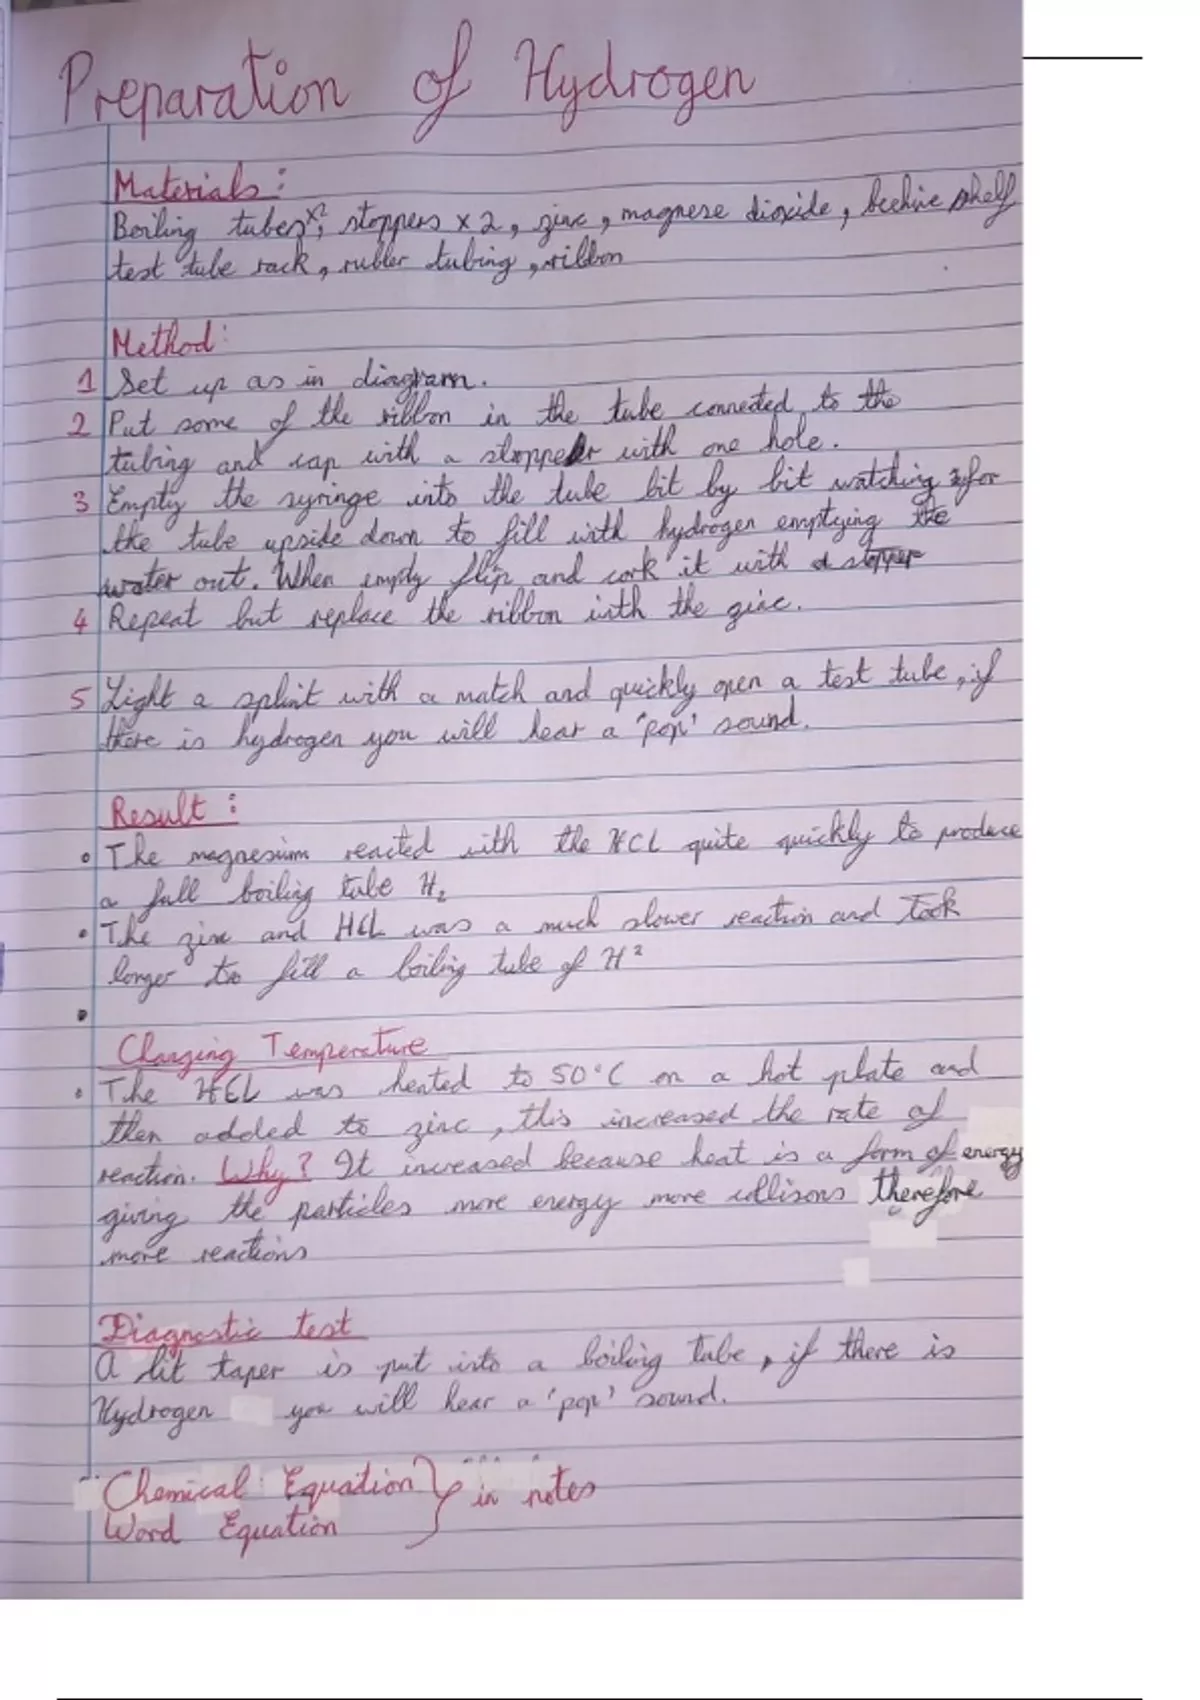 Preparation of Hydrogen
Materials:
Boiling tubes x2, stoppers x 2, zinc, magnese dioxide, beehive shelf
test tube rack, rubber tubing, ribbon
Method:
1 Set up as in diagram.
2 Put some of the ribbon in the tube connected to the
tubing and cap with a stopper with one hole.
3 Empty the syringe into the tube bit by bit watching for
the tube upside down to fill with hydrogen emptying the
water out. When empty flip and cork it with a stopper
4 Repeat but replace the ribbon with the zinc.
5 Light a splint with a match and quickly open a test tube, if
there is hydrogen you will hear a 'pop' sound.
Result:
• The magnesium reacted with the HCL quite quickly to produce
a full boiling tube H₂
• The zinc and HCL was a much slower reaction and took
longer to fill a boiling tube of H²
Changing Temperature
• The HCL was heated to 50°C on a hot plate and
then added to zinc, this increased the rate of
reaction. Why? It increased because heat is a form of energy
giving the particles more energy more collisons therefore
more reactions
Diagnostic test
A lit taper is put into a boiling tube, if there is
Hydrogen you will hear a 'pop' sound.
Chemical Equation } in notes
Word Equation